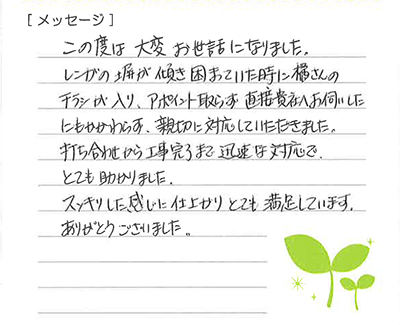 [メッセージ]
この度は 大変 お世話になりました。
レンガの塀が傾き困まっていた時に橘さんの
チラシが入り、アポイント取らず直接貴社へお伺いした
にもかかわらず、親切に対応していただきました。
打ち合わせから工事完了まで迅速な対応で、
とても助かりました。
スッキリした感じに仕上がりとても満足しています。
ありがとうございました。